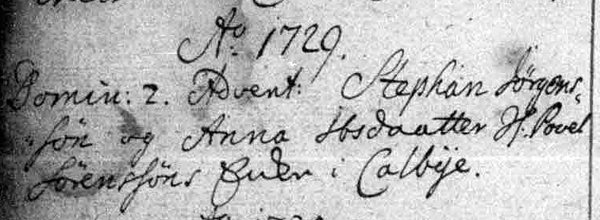 Ao. 1729.
Domin: 2. Advent: Stephan Jørgens,,
,,søn og Anna Ibsdaatter H. Povel
Sørensøns i Calbÿe.